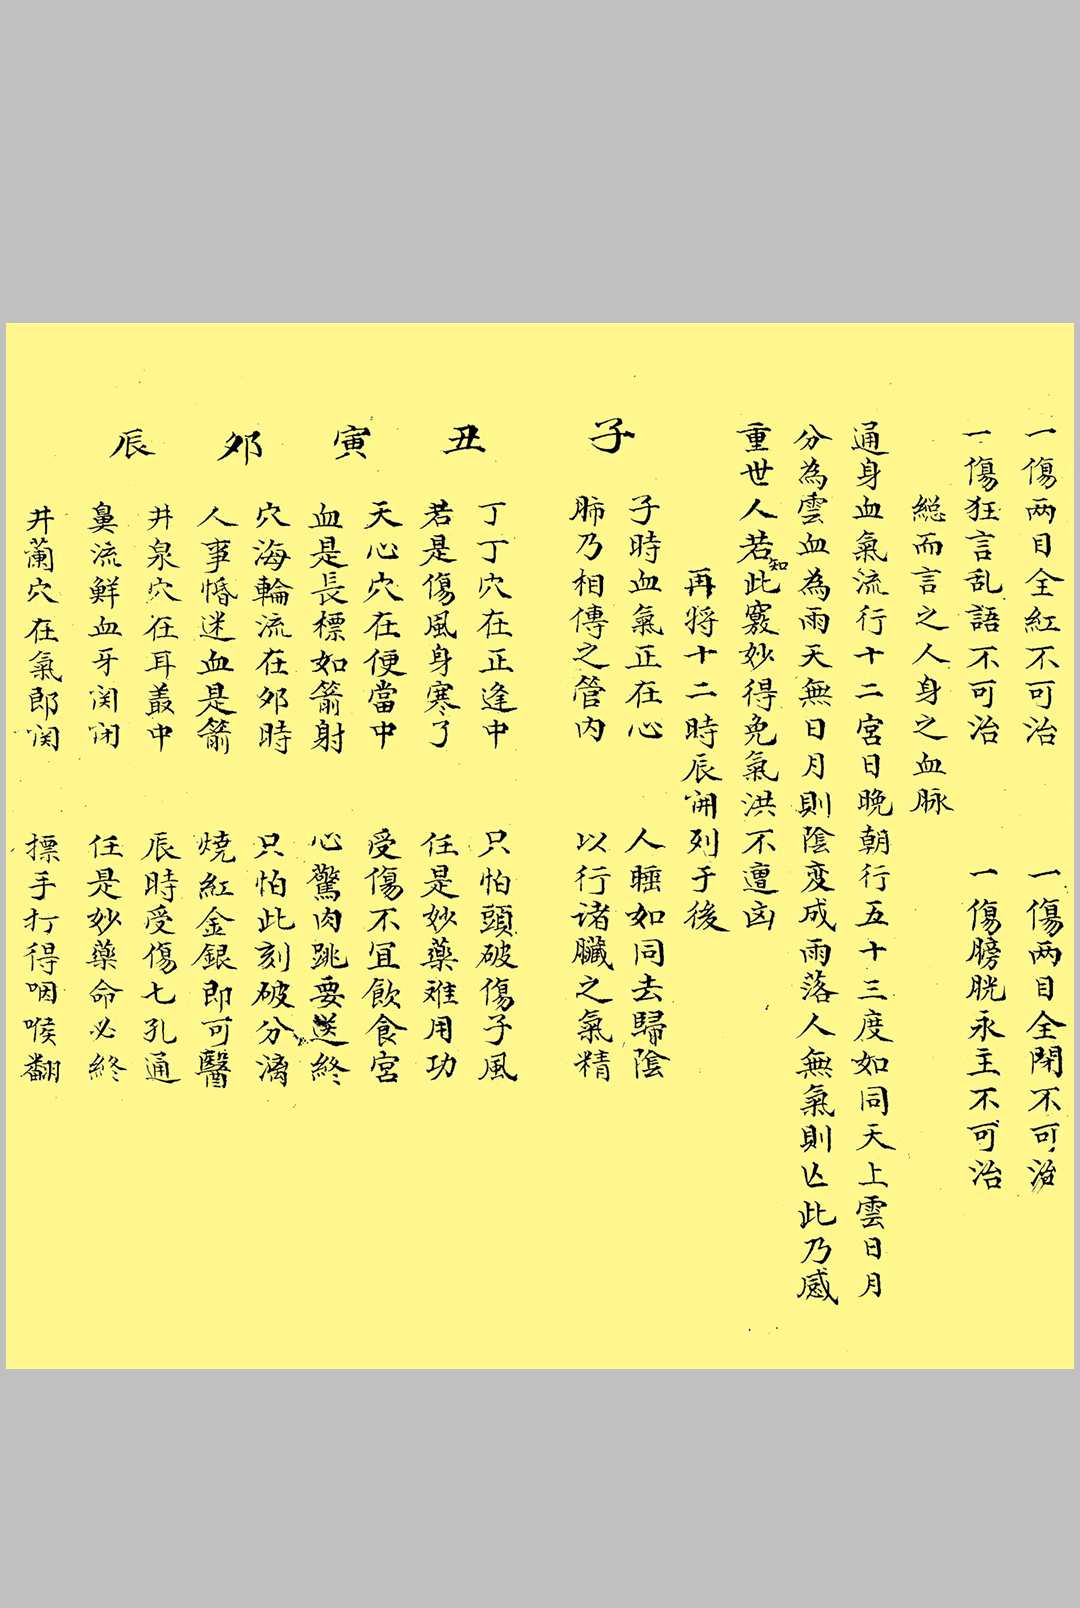 一傷两目全紅不可治　一傷两目全閉不可治
一傷狂言乱語不可治　一傷膀胱永主不可治
総而言之人身之血脉
通身血氣流行十二宮日晚朝行五十三度如同天上雲日月
分為雲血為雨天無日月則陰变成雨落人無氣則亾此乃感
重世人若知此竅妙得免氣洪不遭凶
再将十二時辰開列于後
子
子時血氣正在心　人睡如同去歸陰
肺乃相傳之管内　以行诸臟之氣精
丑
丁丁穴在正逢中　只怕頭破傷子風
若是傷風身寒了　任是妙藥难用功
寅
天心穴在便當中　受傷不宜飲食宮
血是長標如箭射　心驚肉跳要送終
夘
穴海輪流在夘時　只怕此刻破分漓
人事惛迷血是箭　燒紅金銀即可醫
辰
井泉穴在耳叢中　辰時受傷七孔通
鼻流鮮血牙関闭　任是妙藥命必終
井蘭穴在氣郎関　摽手打得咽喉翻